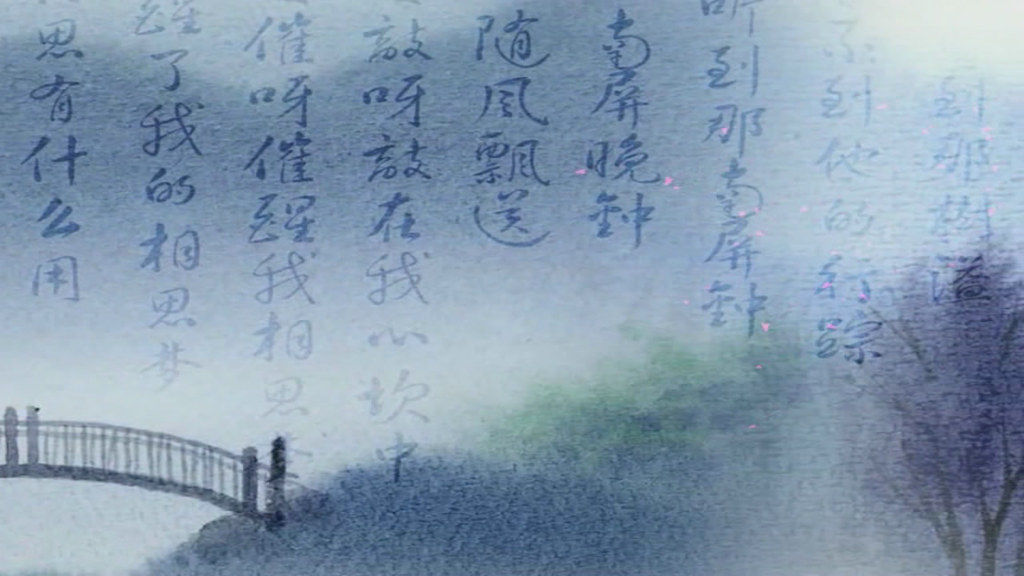 到那樹
不到他的行踪
听到那南屏鈡
南屏晚鈡
随风飄送
敲呀敲在我心坎中
催呀催醒我相思
醒了我的相思梦
思有什么用